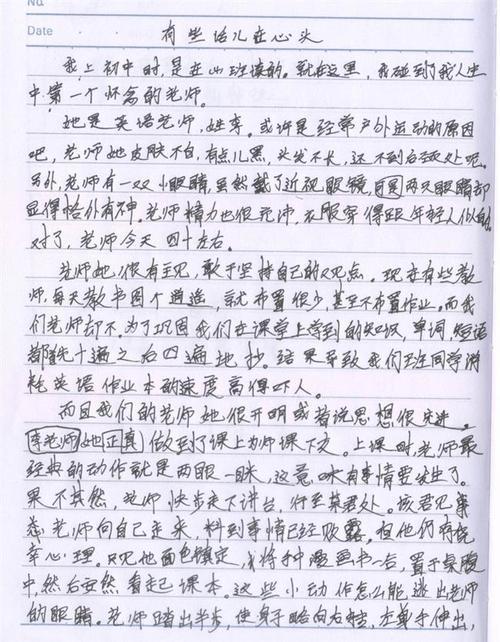 No.
Date
有些话儿在心头
我上初中时,是在山班读的。就在这里,我碰到了我人生
中第一个怀念的老师。
她是英语老师,姓李。或许是经常户外运动的原因
吧,老师她皮肤不白,有点儿黑,头发不长,还不到后颈处呢。
另外,老师有一双小眼睛,虽然戴了近视眼镜,但两只眼睛却
显得格外有神。老师精力也很充沛,衣服穿得跟年轻人似的
对了,老师今天四十左右。
老师她很有主见,敢于坚持自己的观点。现在有些教
师,每天教书图个逍遥,就布置很少,甚至不布置作业。而我
们老师却不。为了巩固我们在课堂上学到的知识,单词,短语
都是十遍之后四遍地抄。结果导致我们班同学消
耗英语作业本的速度高得吓人。
而且我们的老师她很开明或者说思想很先进。
李老师她正真做到了课上为师课下友。上课时,老师最
经典的动作就是两眼一眯,这竟味有事情要发生了。
果不其然,老师快步走下讲台,行至某君处。该君见
老师向自己走来,料到事情已经败露。但他仍有侥
幸心理。只见他面色镇定,将手中漫画书一合,置于桌腹
中,然后安然看起课本。这些小动作怎么能逃出老师
的眼睛。老师踏出半步,使身子略向右转,左手伸出,